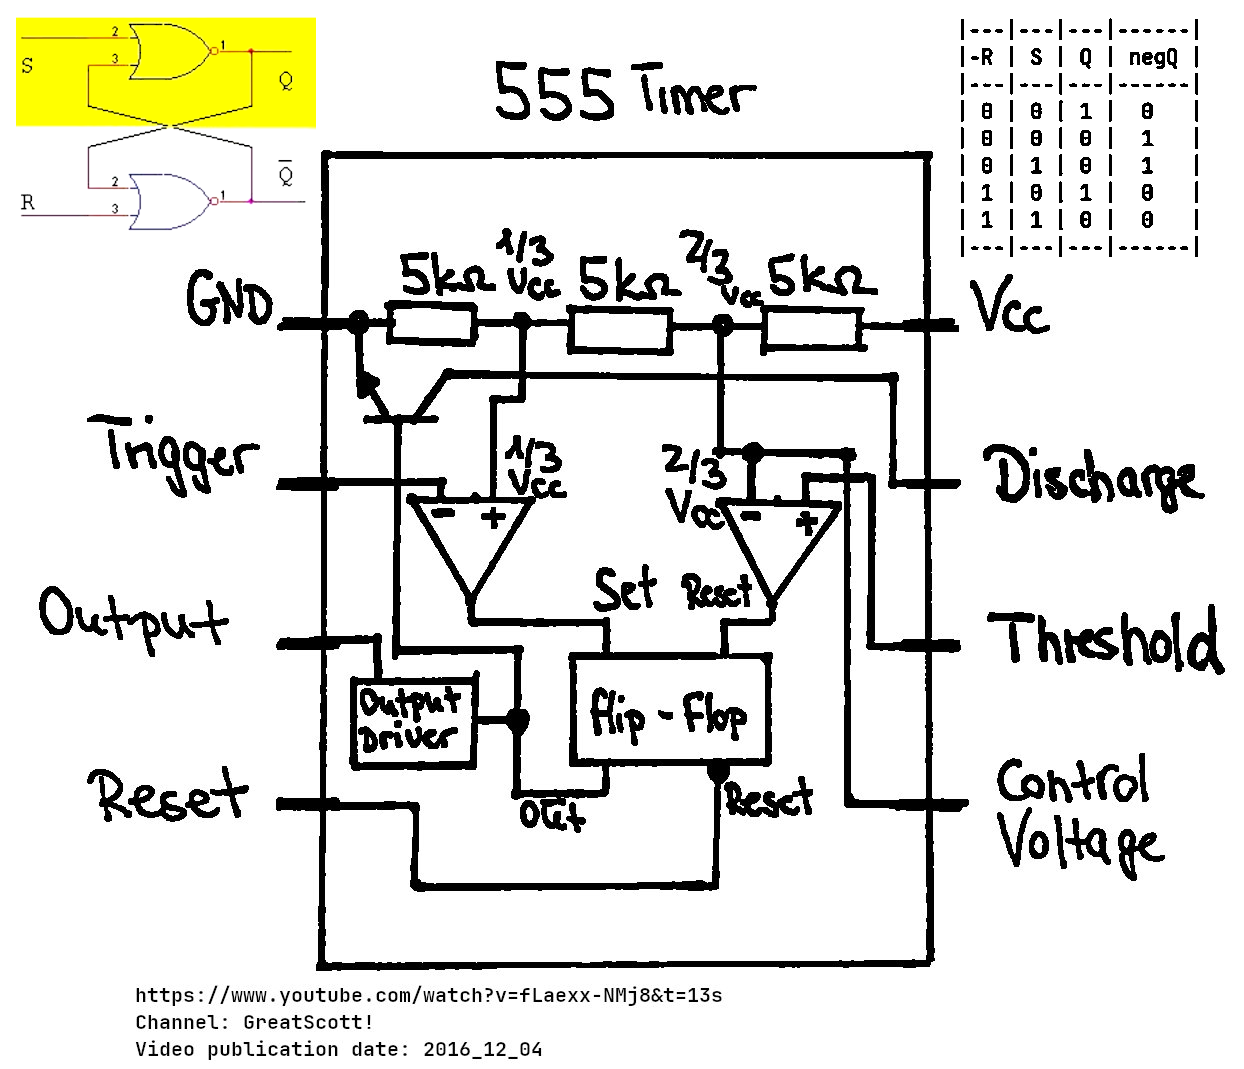 S
2
3
1
Q
2
3
1
Q̅
R
|---|---|---|------|
|-R | S | Q | negQ |
|---|---|---|------|
| 0 | 0 | 1 | 0 |
| 0 | 0 | 0 | 1 |
| 0 | 1 | 0 | 1 |
| 1 | 0 | 1 | 0 |
| 1 | 1 | 0 | 0 |
|---|---|---|------|
555 Timer
GND
5kΩ
1/3
Vcc
5kΩ
2/3
Vcc
5kΩ
Vcc
Trigger
1/3
Vcc
- +
2/3
Vcc
- +
Discharge
Output
Set
Reset
Threshold
Output
Driver
Flip-Flop
Reset
O̅u̅t̅
Reset
Control
Voltage
https://www.youtube.com/watch?v=fLaexx-NMj8&t=13s
Channel: GreatScott!
Video publication date: 2016_12_04